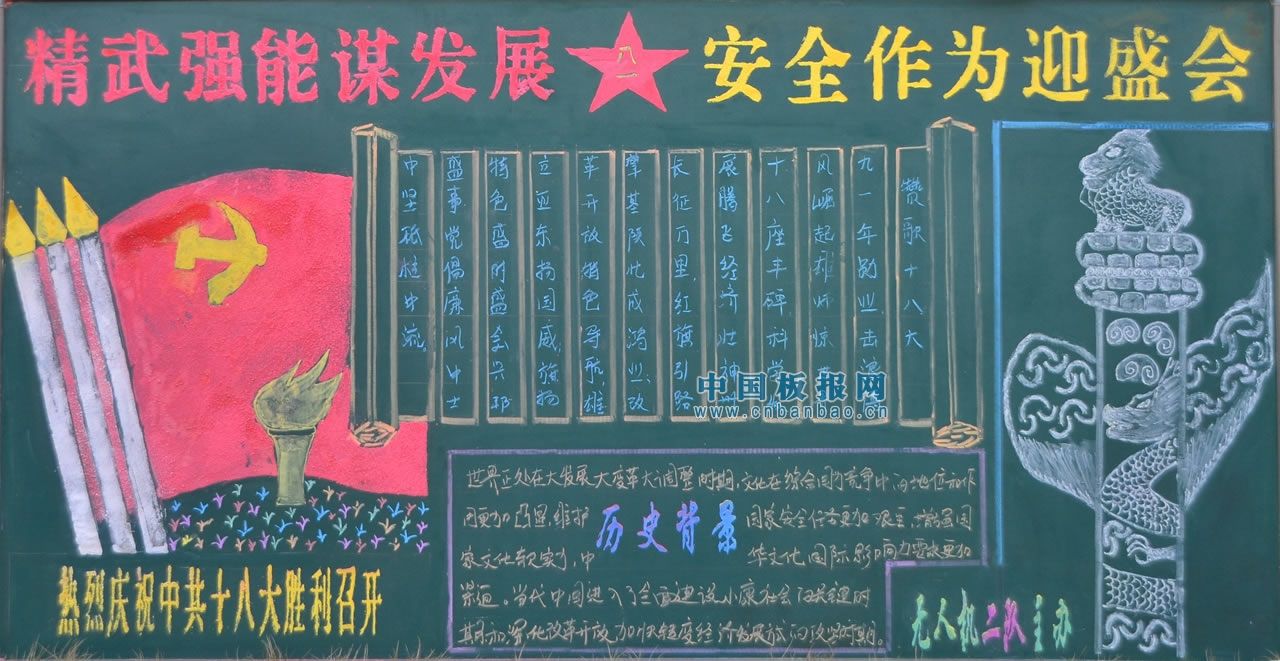 精武强能谋发展
八一
安全作为迎盛会
赞歌十八大
九一年勋业击浪
风崛起雄师惊
十八座丰碑科学
展腾飞经济壮神
长征万里,红旗引路
肇基陕北成鸿业,改
革开放特色导航,雄
立亚东扬国威,旗扬
特色盛时盛会兴邦
盛事党倡廉风中士
中坚砥柱中流。
中国板报网
www.cnbanbao.cn
世界正处在大发展大变革大调整时期,文化在综合国力竞争中的地位和作
用更加凸显,维护
国家安全任务更加艰巨,增强国
历史背景
家文化软实力,中
华文化国际影响力要求更加
紧迫。当代中国进入了全面建设小康社会的关键时
期和深化改革开放,加快转变经济发展方式的攻坚时期。
热烈庆祝中共十八大胜利召开
无人机二队主办